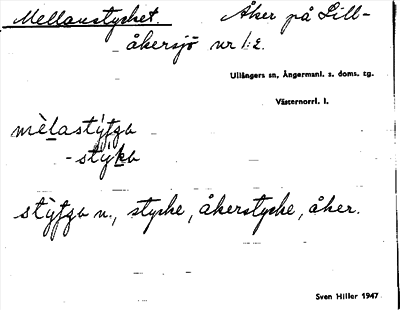 Mellanstycket. Åker på Lill-
åkersjö nr 1:2.
Ullångers sn, Ångermanl. s. doms. tg.
Västernorrl. l.
mèlastýtga
-stýka
stỳtga n., stycke, åkerstycke, åker.
Sven Hiller 1947